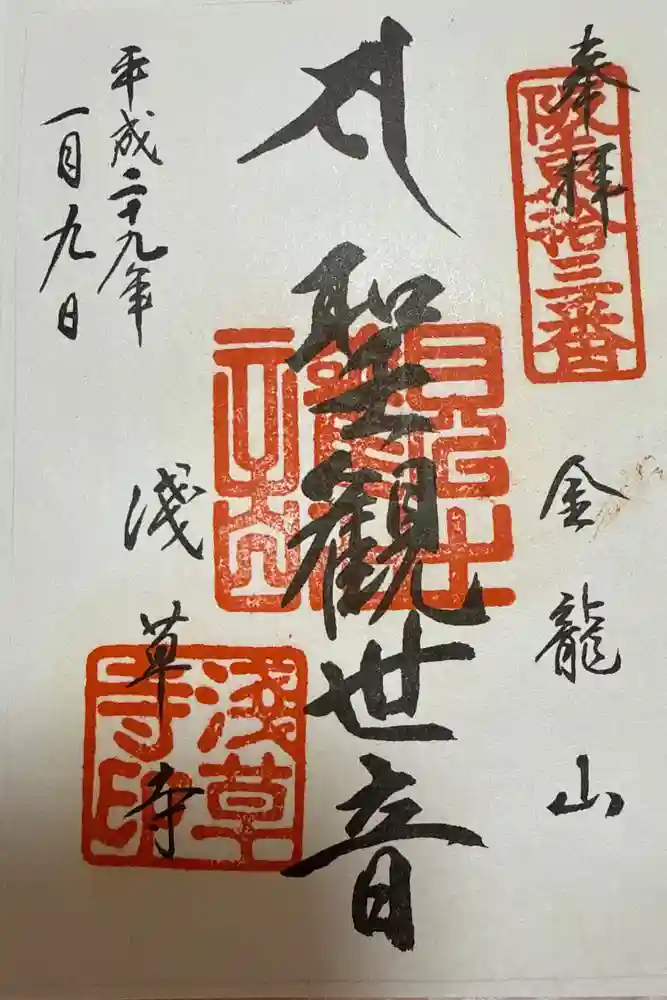 奉拝
坂東拾三番
金龍山
聖観世音
浅草寺
淺草寺印
平成二十九年
一月九日